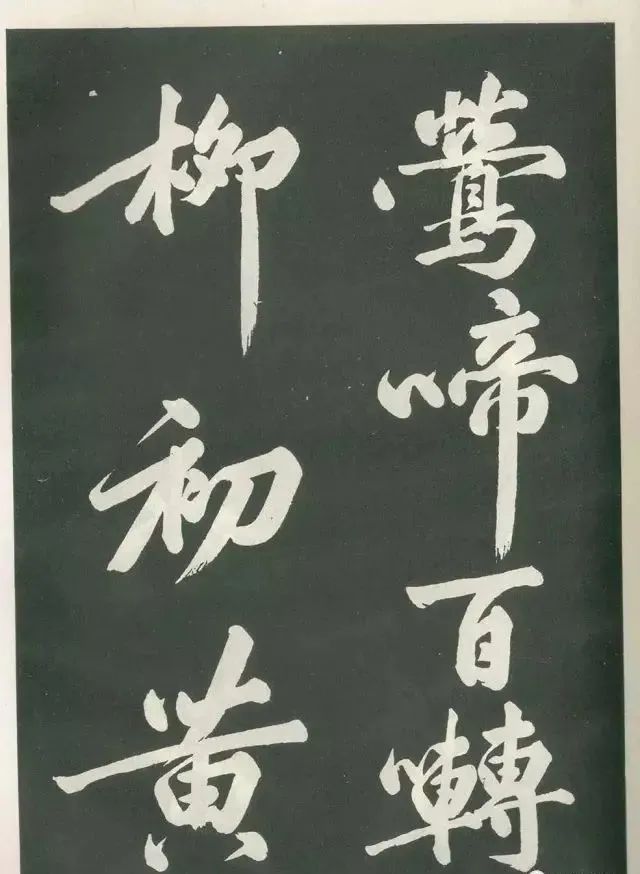 鶯啼百囀
柳初黃